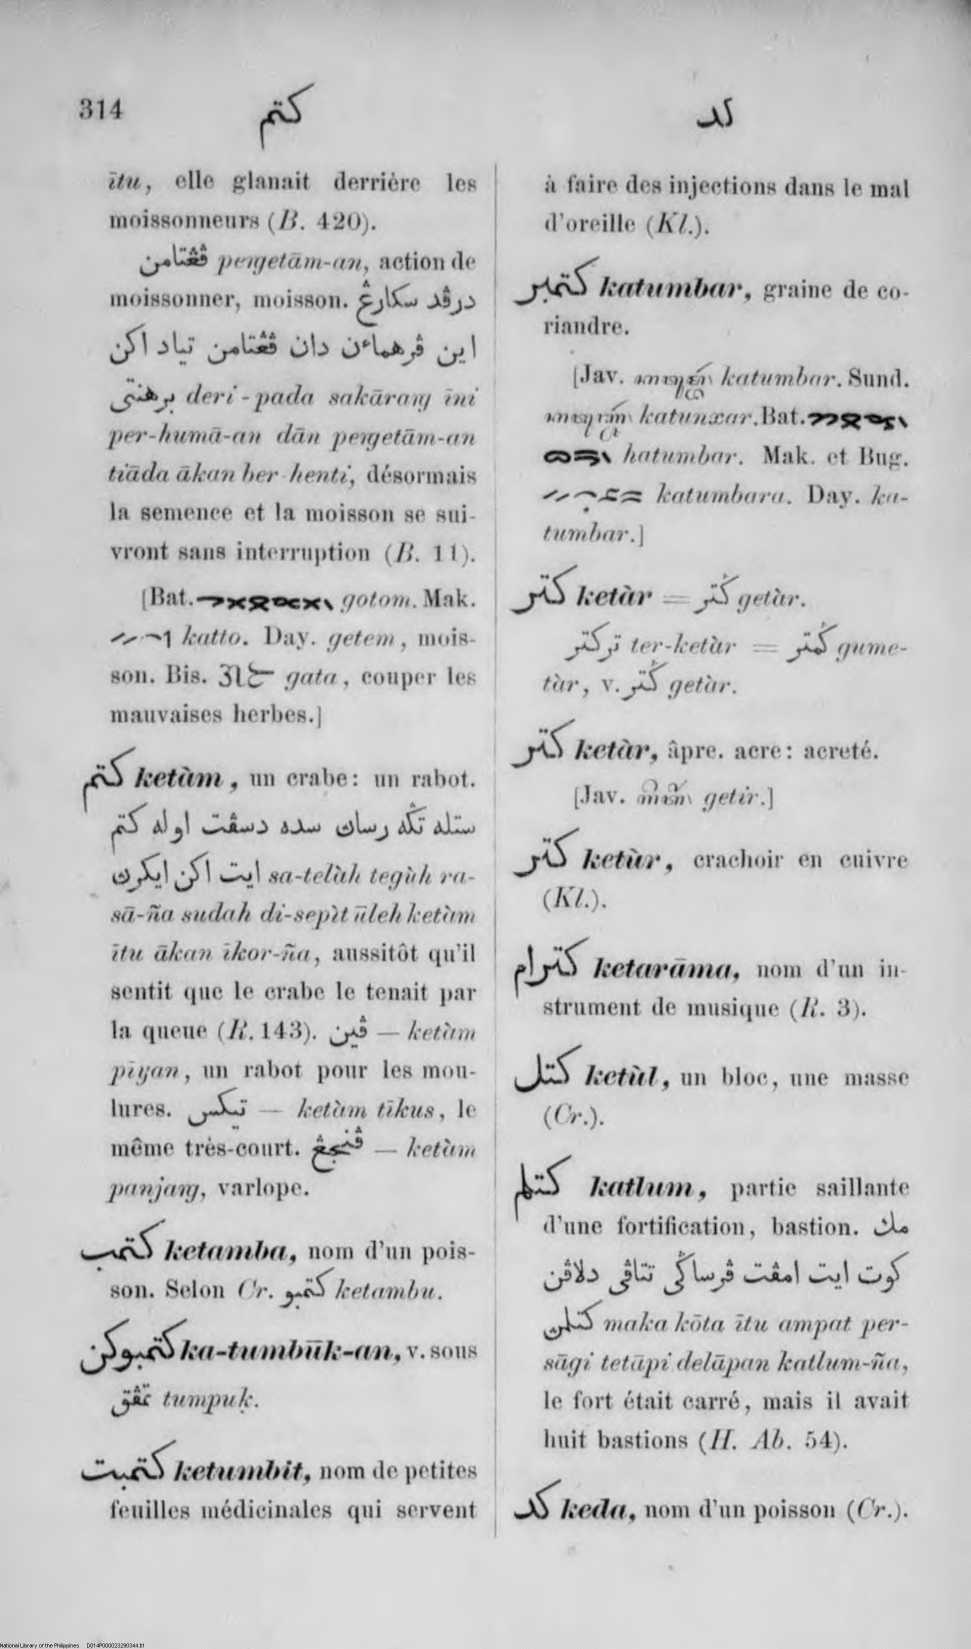 314 كتم كد
ītu, elle glanait derrière les
moissonneurs (B. 420).
ڤڠتامن pergetām-an, action de
moissonner, moisson. درڤد سكارڠ
اين ڤرهماءن دان ڤڠتامن تياد اكن
برهنتي deri-pada sakārang īni
per-humā-an dān pengetām-an
tiāda ākan ber-henti, désormais
la semence et la moisson se sui-
vront sans interruption (B. 11).
[Bat. gotom. Mak.
katto. Day. getem, mois-
son. Bis. gata, couper les
mauvaises herbes.]
كتم ketàm, un crabe: un rabot.
ستله تڬه رساڽ سده دسڤت اوله كتم
ايت اكن ايكرڽ sa-telàh tegùh ra-
sā-ña sudah di-sepìt ūleh ketàm
ītu ākan īkor-ña, aussitôt qu'il
sentit que le crabe le tenait par
la queue (R. 143). ڤين — ketàm
pīyan, un rabot pour les mou-
lures. تيكس — ketàm tīkus, le
même très-court. ڤنجڠ — ketàm
panjang, varlope.
كتمب ketamba, nom d'un pois-
son. Selon Cr. كتمبو ketambu.
كتمبوكن ka-tumbūk-an, v. sous
تمڤق tumpuḳ.
كتمبت ketumbit, nom de petites
feuilles médicinales qui servent
à faire des injections dans le mal
d'oreille (Kl.).
كتمبر katumbar, graine de co-
riandre.
[Jav. katumbar. Sund.
katunxar. Bat.
hatumbar. Mak. et Bug.
katumbara. Day. ka-
tumbar.]
كتر ketàr = ڬتر getàr.
تركتر ter-ketàr = ڬمتر gume-
tàr, v. ڬتر getàr.
كتر ketàr, âpre. acre: acreté.
[Jav. getir.]
كتر ketùr, crachoir en cuivre
(Kl.).
كترام ketarāma, nom d'un in-
strument de musique (R. 3).
كتل ketùl, un bloc, une masse
(Cr.).
كتلم katlum, partie saillante
d'une fortification, bastion. مك
كوت ايت امڤت ڤرساڬي تتاڤي دلاڤن
كتلمڽ maka kōta ītu ampat per-
sāgi tetāpi delāpan katlum-ña,
le fort était carré, mais il avait
huit bastions (H. Ab. 54).
كد keda, nom d'un poisson (Cr.).
National Library of the Philippines